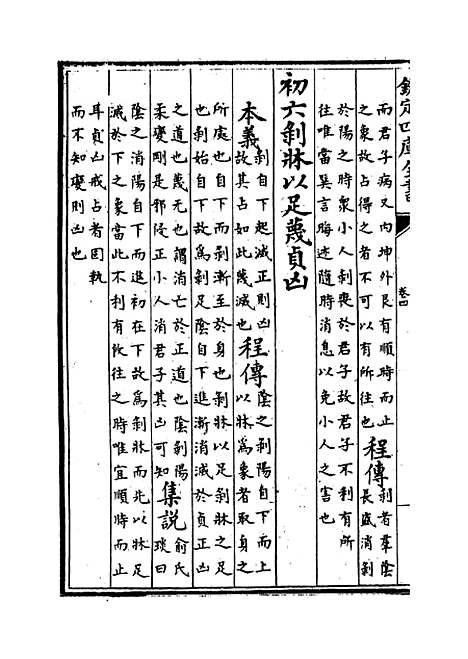 欽定四庫全書
卷四
而君子病又内坤外艮有順時而止
之象故占得之者不可以有所往也
程傳
剥者羣陰
長盛消剥
於陽之時衆小人剥喪於君子故君子不利有所
往唯當巽言晦迹隨時消息以免小人之害也
初六剥牀以足蔑貞凶
本義
剥自下起滅正則凶
故其占如此蔑滅也
程傳
陰之剥陽自下而上
以牀為象者取身之
所處也自下而剥漸至於身也剥牀以足剥牀之足
也剥始自下故為剥足陰自下進漸消滅於貞正凶
之道也蔑无也謂消亡於正道也陰剥陽
柔變剛是邪侵正小人消君子其凶可知
集説
俞氏
琰曰
陰之消陽自下而進初在下故為剥牀而先以牀足
滅於下之象當此不利有攸往之時唯宜順時而止
耳貞凶戒占者固執
而不知變則凶也